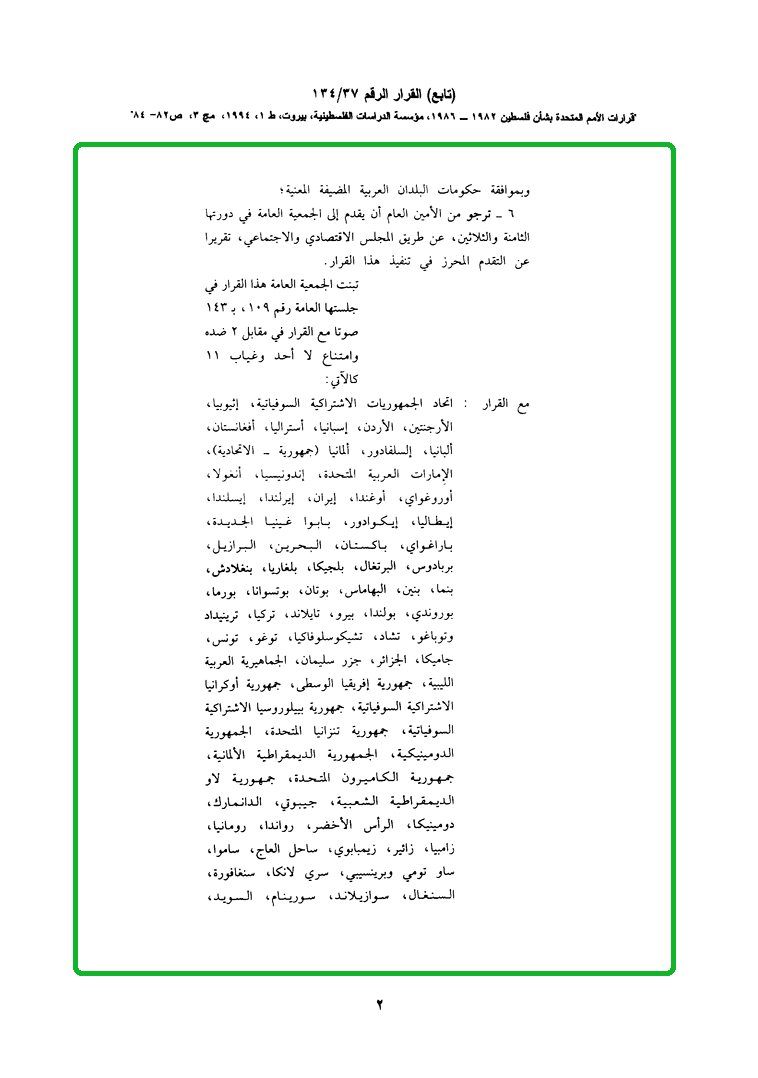 (تابع) القرار الرقم ١٣٤/٣٧
"قرارات الأمم المتحدة بشأن فلسطين ١٩٨٢ ــ ١٩٨٦، مؤسسة الدراسات الفلسطينية، بيروت، ط ١، ١٩٩٤، مج ٣، ص٨٢– ٨٤"
وبموافقة حكومات البلدان العربية المضيفة المعنية؛
٦ ــ ترجو من الأمين العام أن يقدم إلى الجمعية العامة في دورتها
الثامنة والثلاثين، عن طريق المجلس الاقتصادي والاجتماعي، تقريرا
عن التقدم المحرز في تنفيذ هذا القرار.
تبنت الجمعية العامة هذا القرار في
جلستها العامة رقم ١٠٩، بـ ١٤٣
صوتا مع القرار في مقابل ٢ ضده
وامتناع لا أحد وغياب ١١
كالآتي:
مع القرار : اتحاد الجمهوريات الاشتراكية السوفياتية، إثيوبيا،
الأرجنتين، الأردن، إسبانيا، أستراليا، أفغانستان،
ألبانيا، إلسلفادور، ألمانيا (جمهورية ــ الاتحادية)،
الإمارات العربية المتحدة، إندونيسيا، أنغولا،
أوروغواي، أوغندا، إيران، إيرلندا، إيسلندا،
إيطاليا، إيكوادور، بابوا غينيا الجديدة،
باراغواي، باكستان، البحرين، البرازيل،
بربادوس، البرتغال، بلجيكا، بلغاريا، بنغلادش،
بنما، بنين، البهاماس، بوتان، بوتسوانا، بورما،
بوروندي، بولندا، بيرو، تايلاند، تركيا، ترينيداد
وتوباغو، تشاد، تشيكوسلوفاكيا، توغو، تونس،
جاميكا، الجزائر، جزر سليمان، الجماهيرية العربية
الليبية، جمهورية إفريقيا الوسطى، جمهورية أوكرانيا
الاشتراكية السوفياتية، جمهورية بييلوروسيا الاشتراكية
السوفياتية، جمهورية تنزانيا المتحدة، الجمهورية
الدومينيكية، الجمهورية الديمقراطية الألمانية،
جمهورية الكاميرون المتحدة، جمهورية لاو
الديمقراطية الشعبية، جيبوتي، الدانمارك،
دومينيكا، الرأس الأخضر، رواندا، رومانيا،
زامبيا، زائير، زيمبابوي، ساحل العاج، ساموا،
ساو تومي وبرينسيبي، سري لانكا، سنغافورة،
السنغال، سوازيلاند، سورينام، السويد،
٢